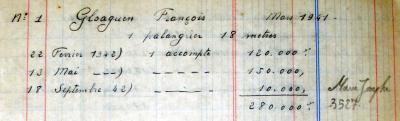 N° 1 Gloaguen François Mars 1941.
1 palangrier 18 metres
22 Fevrier 1942) 1 accompte 120.000 f
13 Mai ---) ----- 150.000,
18 Septembre 42) ----- 10.000,
280.000 f
Marie Josephe
3527